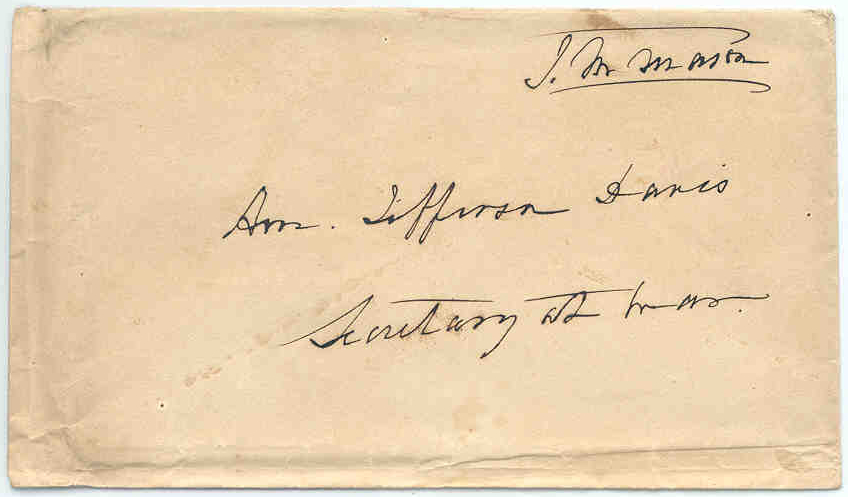 J. M Mason
Hon. Jefferson Davis
Secretary at War.